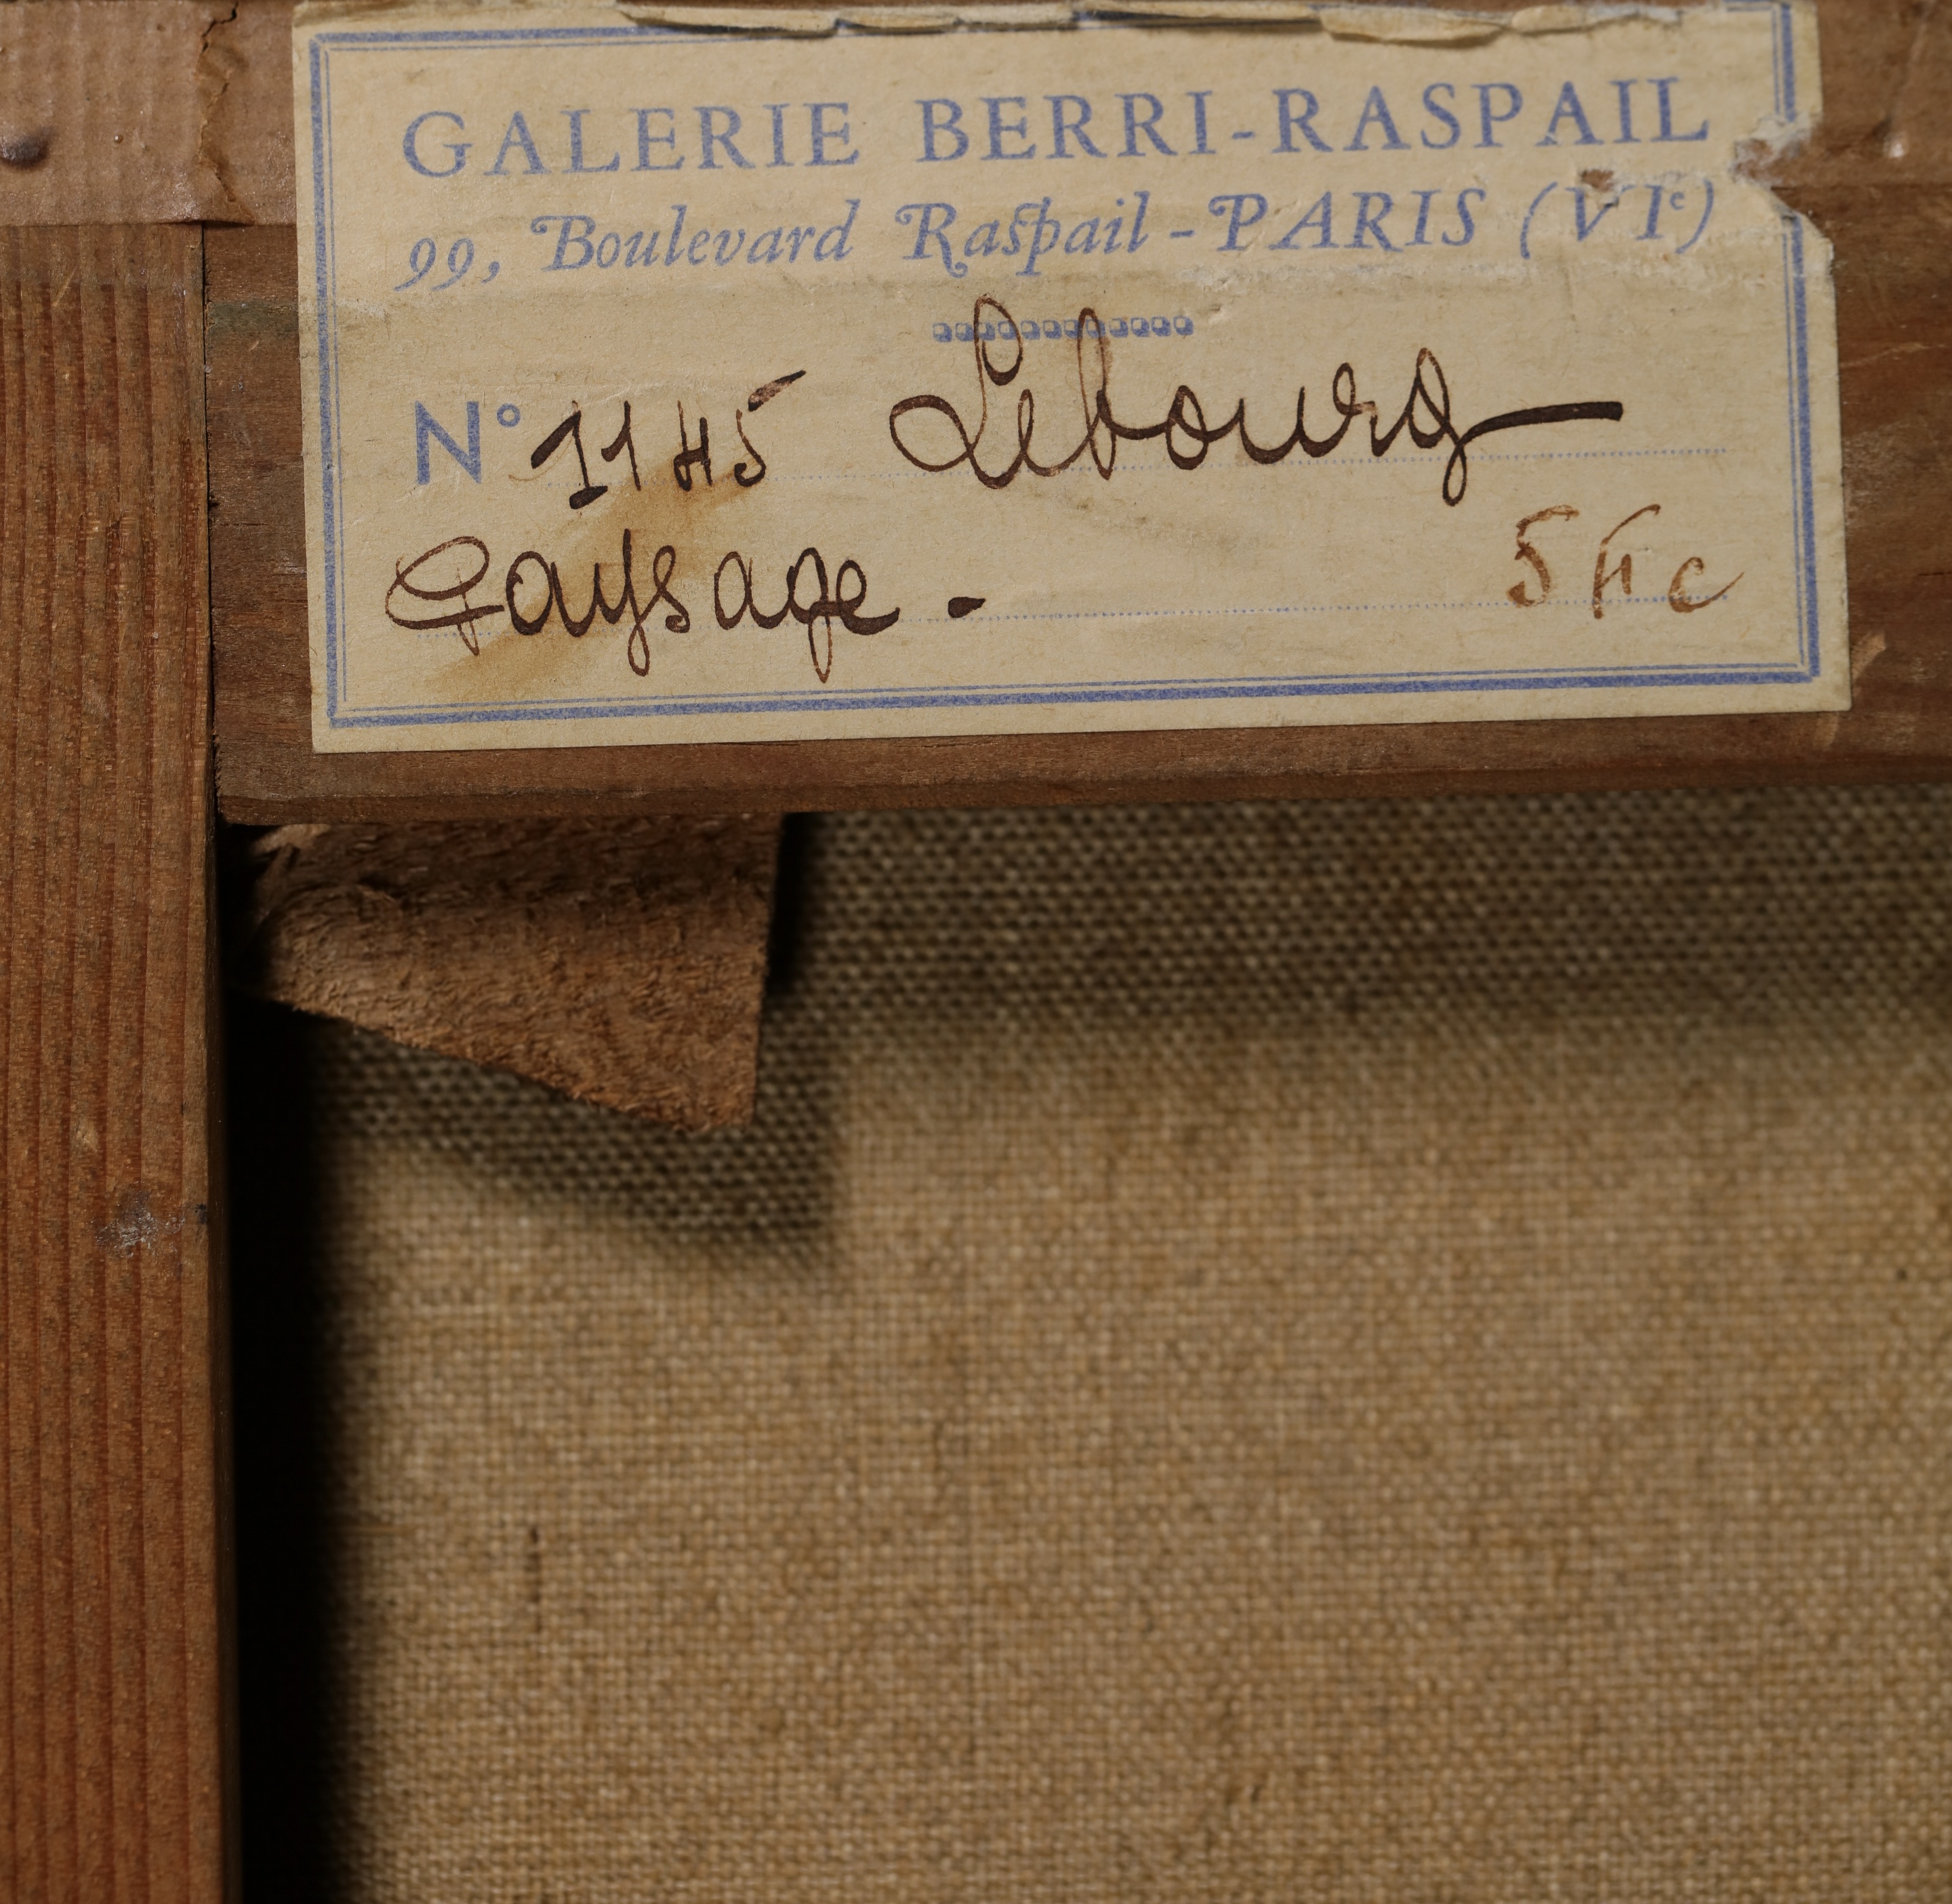 GALERIE BERRI-RASPAIL
99, Boulevard Raspail - PARIS (VIe)
N° 1145 Lebourg
Paysage.